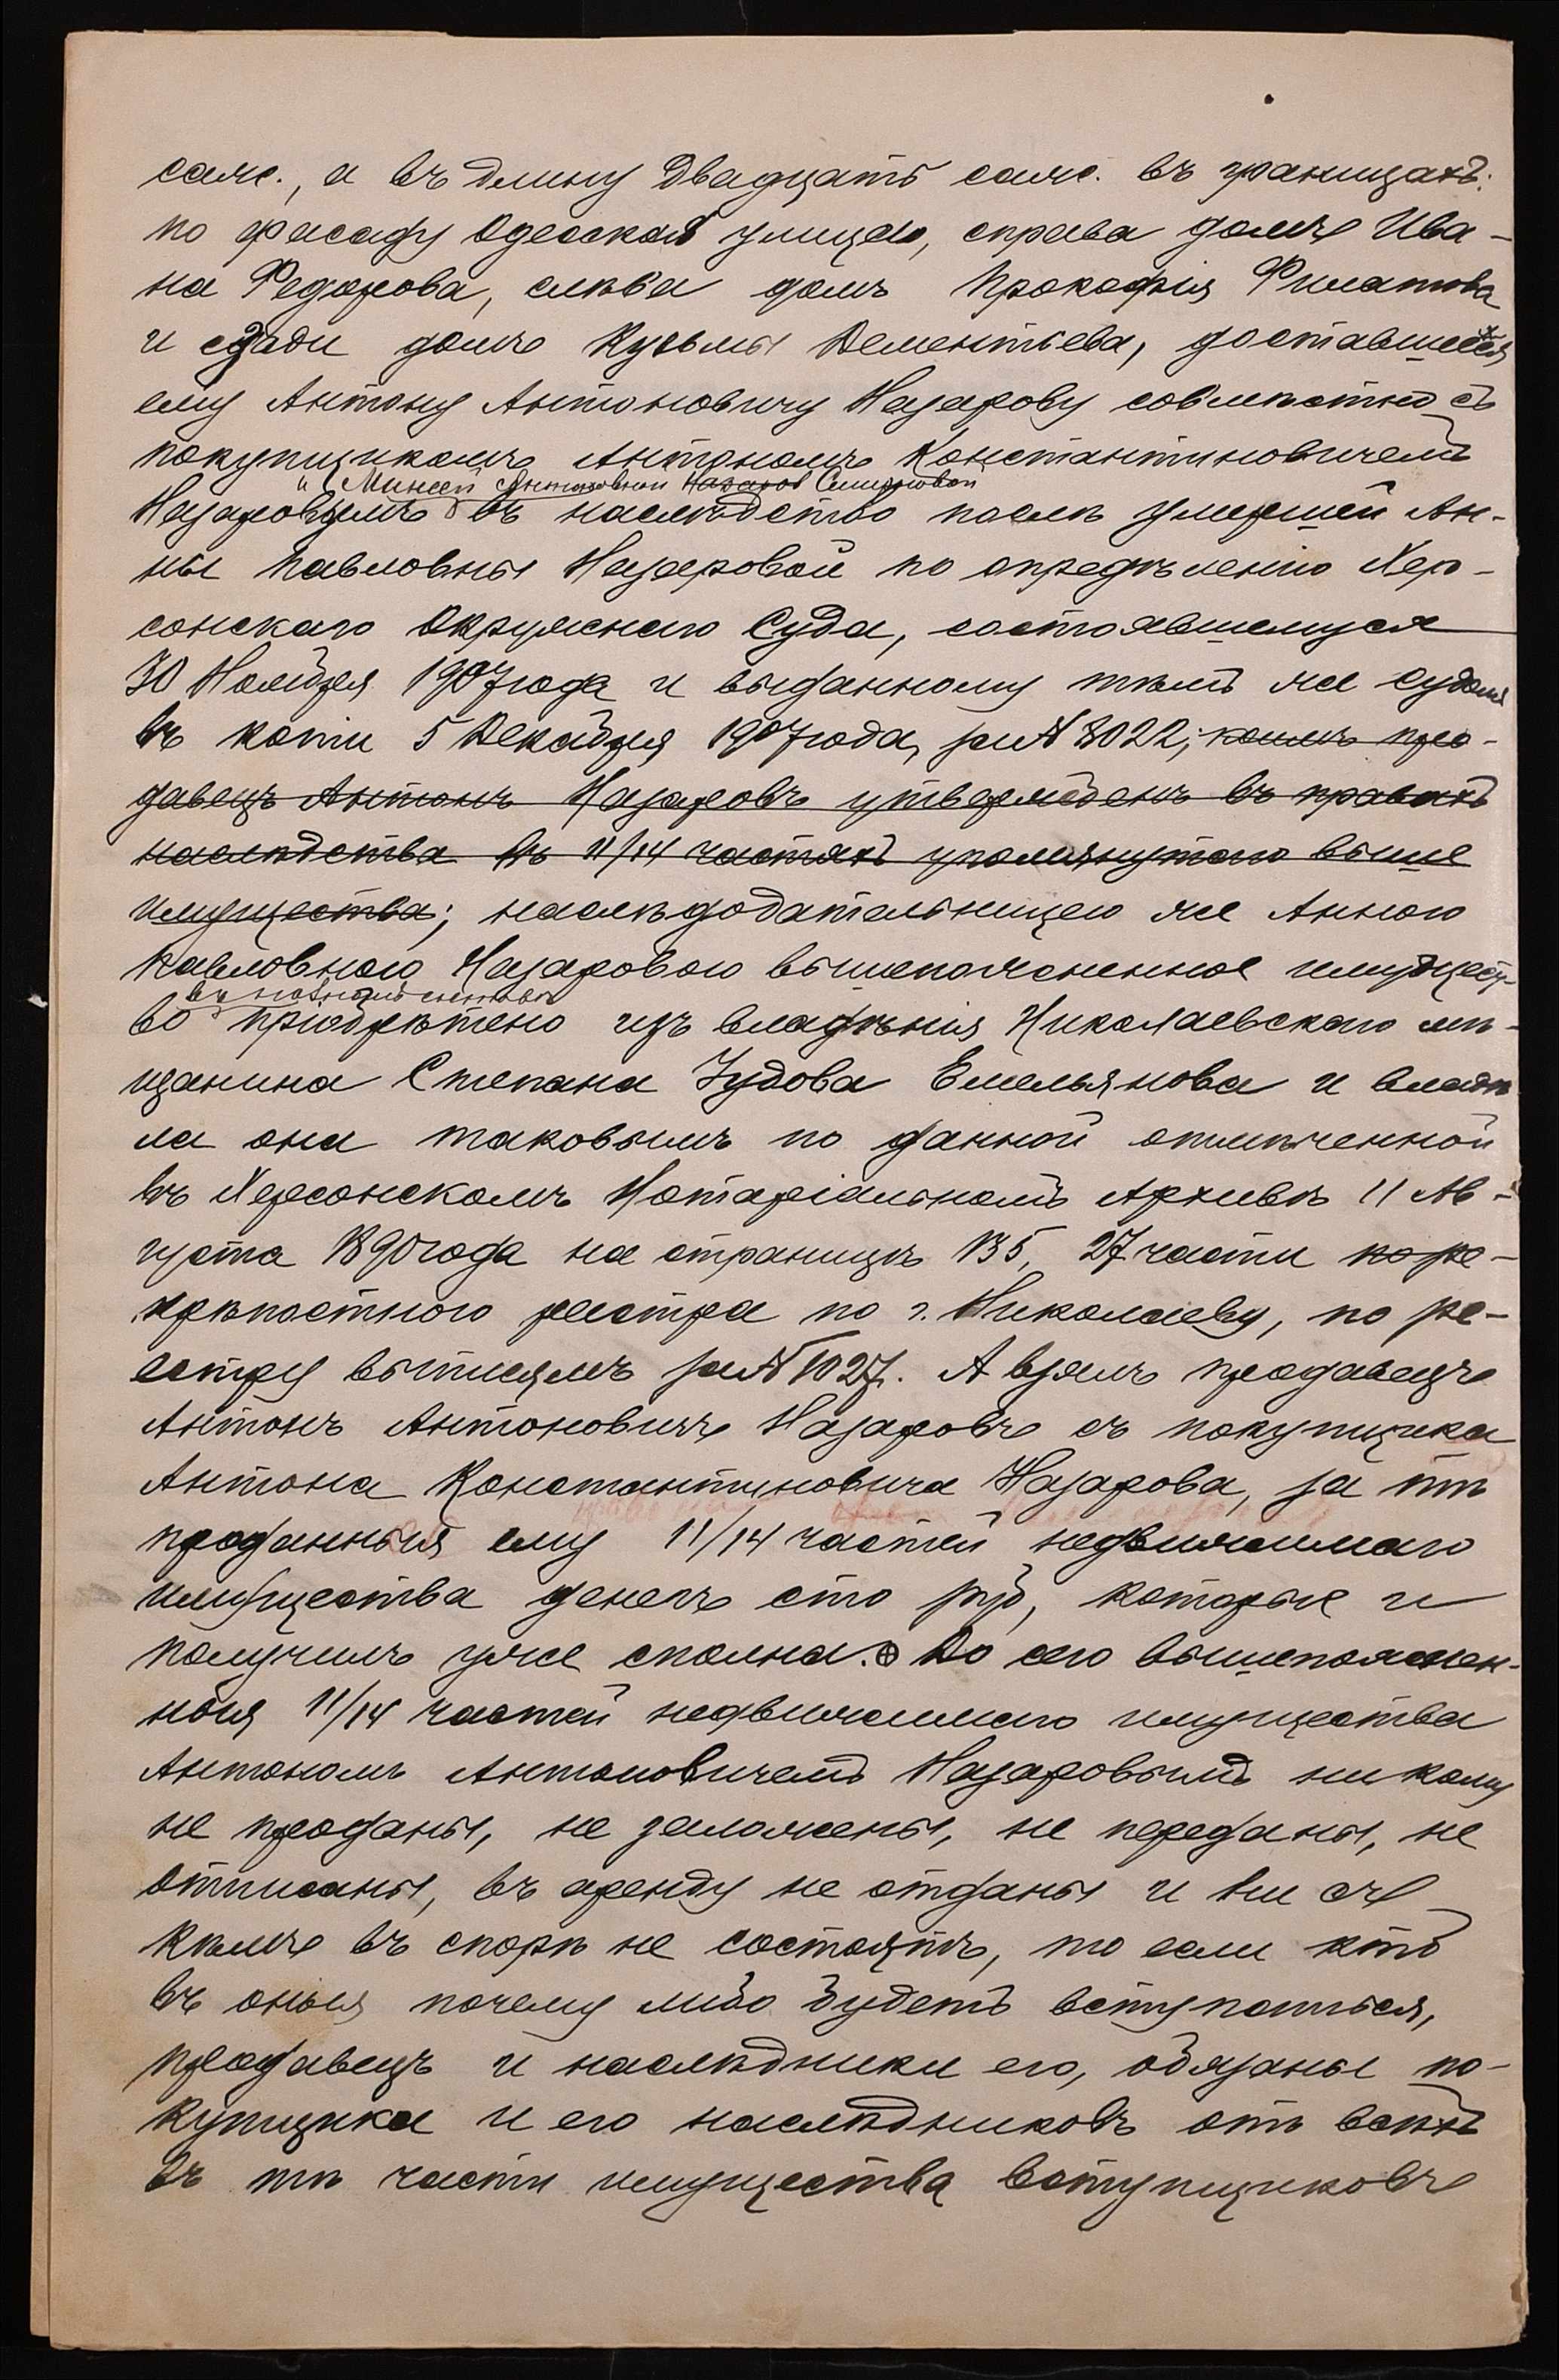 саже., а въ длину двадцать саже. въ границахъ:
по фасаду Одесская улицею, справа домъ Ива-
на Федорова, слѣва домъ Прокофія Филатова
и сзади домъ Кузьмы Дементьева, доставшееся
ему Антону Антоновичу Назарову совмѣстно съ
покупщикомъ Антономъ Константиновичемъ
и Антоновной Назаров Симоновой
Назаровымъ въ наслѣдство послѣ умершей Ан-
ны Павловны Назаровой по опредѣленію Хер-
сонскаго Окружнаго Суда, состоявшемуся
30 Ноября 1907 года и выданному тѣмъ же судомъ
въ копіи 5 Декабря 1907 года, за № 8022; коимъ про-
давецъ Антонъ Назаровъ утвержденъ въ правахъ
наслѣдства въ 11/14 частяхъ упомянутаго выше
имущества; наслѣдодательницею же Анною
Павловною Назаровою вышепоясненное имущест-
во пріобрѣтено изъ владѣнія Николаевскаго мѣ-
щанина Степана Зудова Емельянова и владѣ
ла она таковымъ по данной отмѣченной
въ Херсонскомъ Нотаріальномъ Архивѣ 11 Ав-
густа 1890 года на страницѣ 135, 27 части по ре-
крѣпостного реестра по г. Николаеву, по ре-
естру выписямъ за № 1027. А взялъ продавецъ
Антонъ Антоновичъ Назаровъ съ покупщика
Антона Константиновича Назарова, за тѣ
проданныя ему 11/14 частей недвижимаго
имущества денегъ сто руб, которые и
получилъ уже сполна. До сего вышепояснен-
ныя 11/14 частей недвижимаго имущества
Антономъ Антоновичемъ Назаровымъ никому
не проданы, не заложены, не переданы, не
отписаны, въ аренду не отданы и ни съ
кѣмъ въ спорѣ не состоятъ, то если кто
въ оныя почему либо будетъ вступаться,
продавецъ и наслѣдники его, обязаны по-
купщика и его наслѣдниковъ отъ всѣхъ
въ тѣ части имущества вступщиковъ